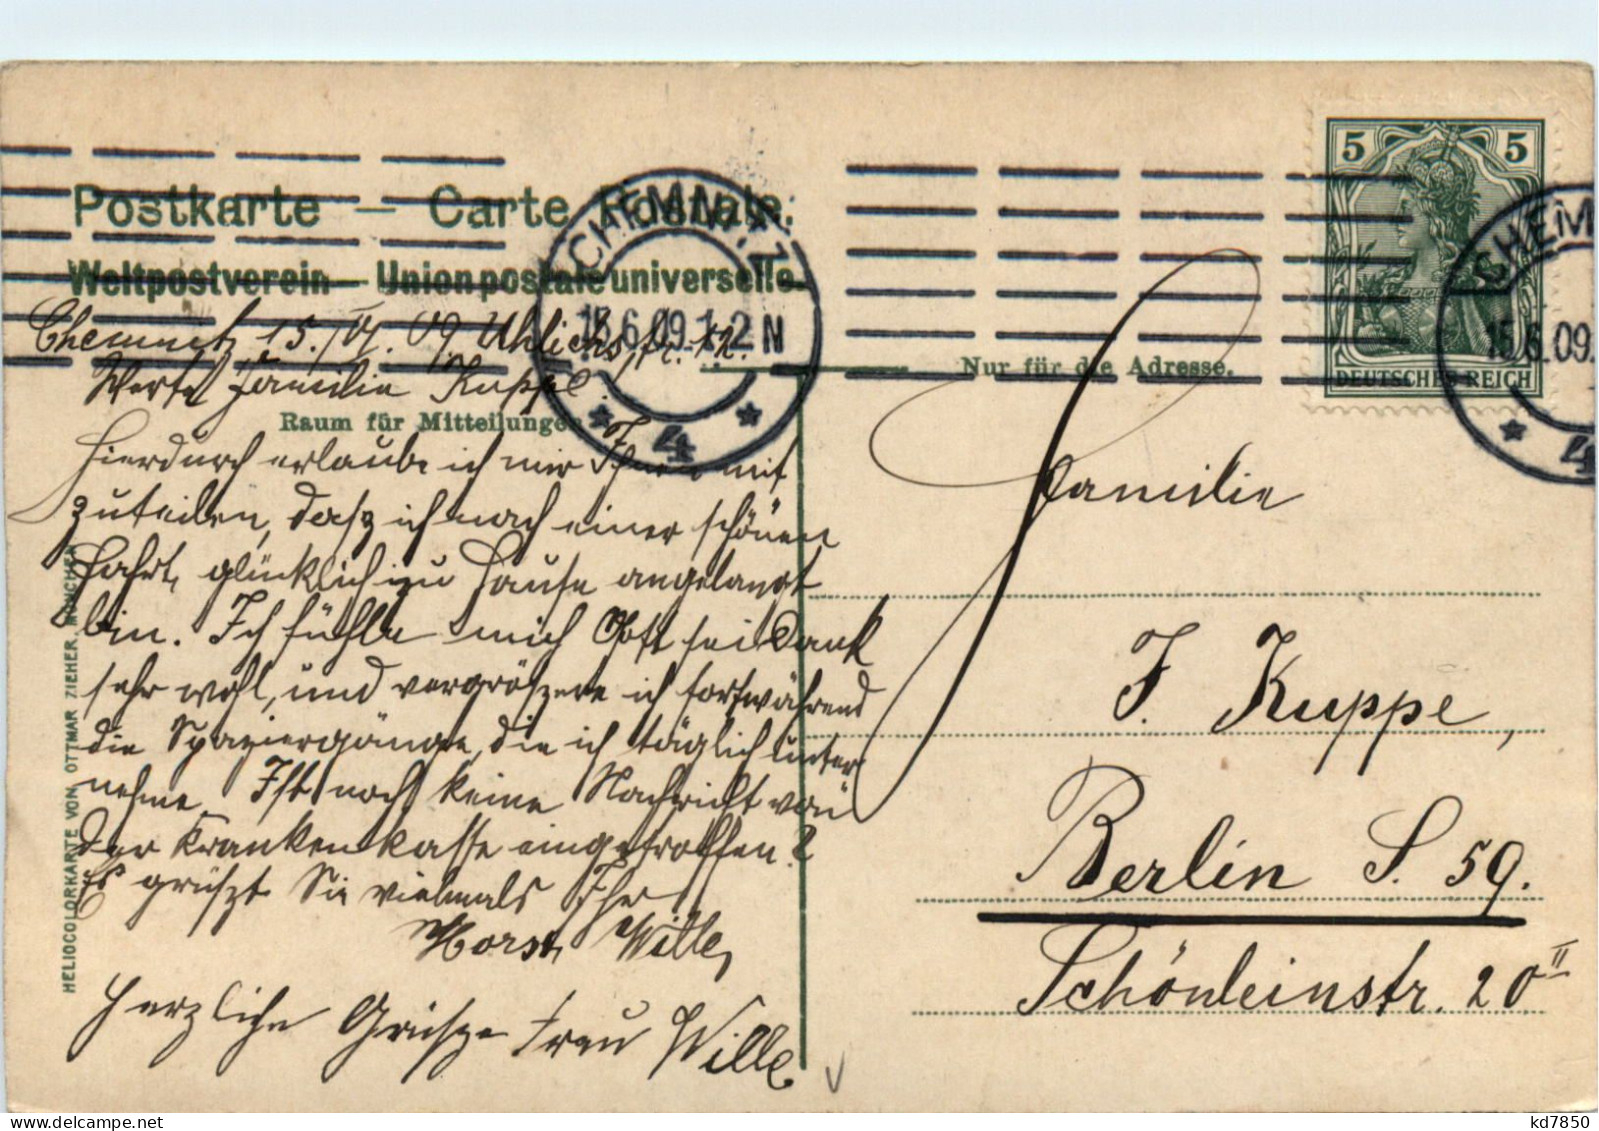 Postkarte — Carte Postale.
Weltpostverein — Union postale universelle.
CHEMNITZ
15.6.09.1-2N
* 4 *
5 5
DEUTSCHES REICH
CHEM
15.6.09.
* 4
Chemnitz 15./VI. 09 Uhlichstr. 12.
Nur für die Adresse.
Werte Familie Kuppe.
Raum für Mitteilungen
Hierdurch erlaube ich mir Ihnen mit
zuteilen, dasz ich nach einer schönen
Fahrt, glücklich zu Hause angelangt
bin. Ich fühle mich Gott sei Dank
sehr wohl, und vergröszere ich fortwährend
die Spaziergänge, die ich täglich unter
nehme. Ist noch keine Nachricht von
der Krankenkasse eingetroffen?
Es grüszt Sie vielmals Ihr
Horst Wille,
Herzliche Grüsze Frau Wille
HELIOCOLORKARTE VON OTTMAR ZIEHER, MÜNCHEN
Familie
F. Kuppe,
Berlin S. 59.
Schönleinstr. 20 II
kd7850